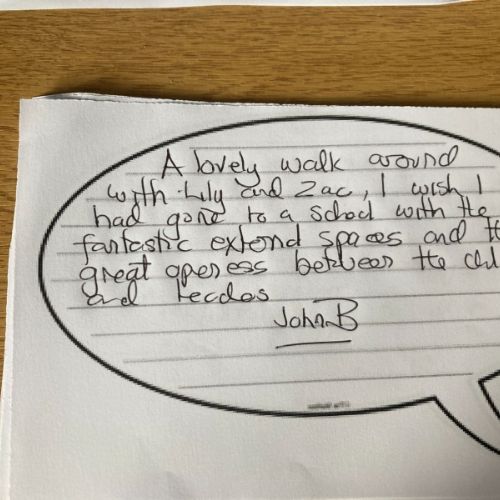 A lovely walk around
with Lily and Zac, I wish I
had gone to a school with the
fantastic external spaces and the
great openess between the
and
John B